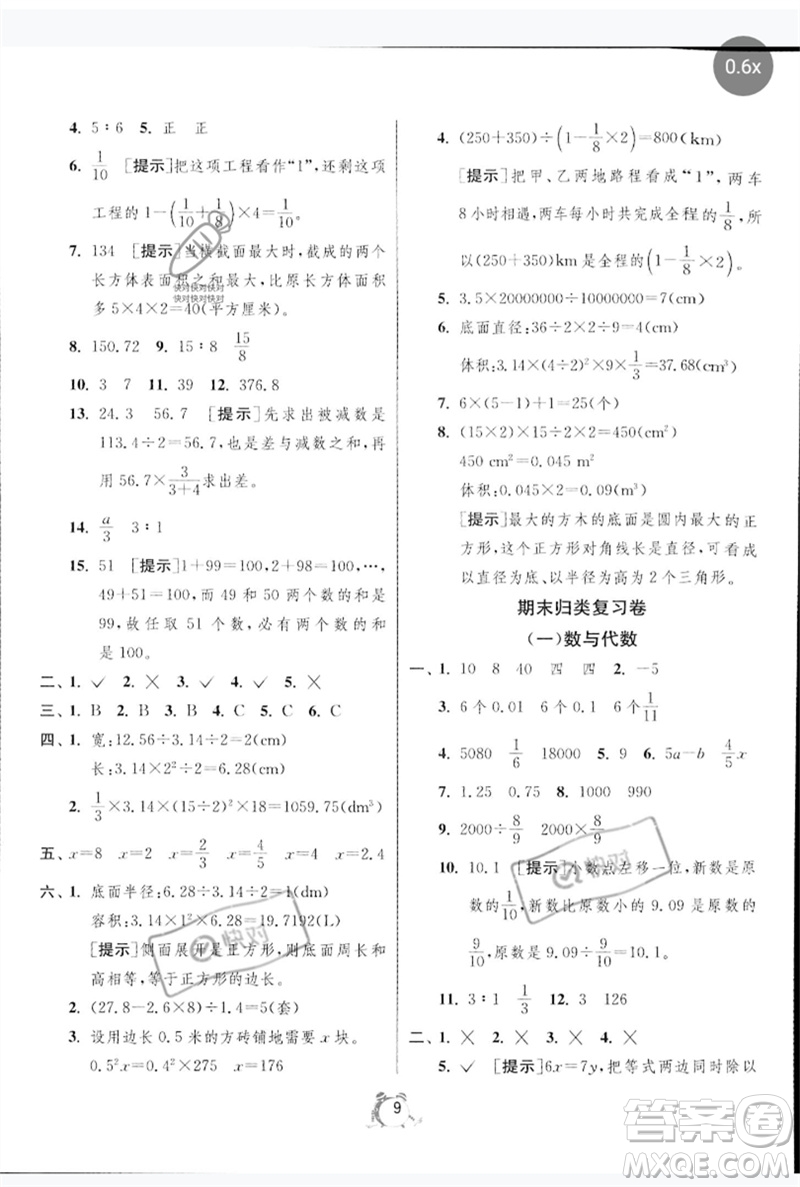 0.6x
4. 5∶6 5. 正 正
6. 1/10 [提示]把这项工程看作“1”,还剩这项
工程的1-(1/10+1/8)×4=1/10。
7. 134 [提示]当横截面最大时,截成的两个
长方体表面积之和最大,比原长方体面积
多5×4×2=40(平方厘米)。
快对快对快对
快对快对快对
8. 150.72 9. 15∶8 15/8
10. 3 7 11. 39 12. 376.8
13. 24.3 56.7 [提示]先求出被减数是
113.4÷2=56.7,也是差与减数之和,再
用56.7×3/(3+4)求出差。
14. a/3 3∶1
15. 51 [提示]1+99=100,2+98=100,…,
49+51=100,没有与50和100配对的
数,故任取51个数,必有两个数的和
是100。
二、1. ✓ 2. × 3. ✓ 4. ✓ 5. ×
三、1. B 2. B 3. B 4. C 5. B 6. C
四、1. 宽:12.56÷3.14÷2=2(cm)
长:3.14×2²÷2=6.28(cm)
2. 1/3×3.14×(15÷2)²×18=1059.75(dm³)
五、x=8 x=2/3 x=4/5 x=4 x=2.4
六、1. 底面半径:6.28÷3.14÷2=1(dm)
容积:3.14×1²×6.28=19.7192(L)
[提示]侧面展开是正方形,则底面周长和
高相等,等于正方形的边长。
2. (27.8-2.6×8)÷1.4=5(套)
3. 设用边长0.5米的方砖铺地需要x块。
0.5²x=0.4²×275 x=176
4. (250+350)÷(1-1/8×2)=800(km)
[提示]把甲、乙两地路程看成“1”,两车
8小时相遇,两车每小时共完成全程的1/8,所
以(250+350)km是全程的(1-1/8×2)。
5. 3.5×20000000÷10000000=7(cm)
6. 底面直径:36÷2×2÷9=4(cm)
体积:3.14×(4÷2)²×9×1/3=37.68(cm³)
7. 6×(5-1)+1=25(个)
8. (15×2)×15÷2×2=450(cm²)
450 cm²=0.045 m²
体积:0.045×2=0.09(m³)
[提示]最大的方木的底面是圆内最大的正
方形,这个正方形对角线长是直径,可看成
以直径为底、以半径为高为2个三角形。
期末归类复习卷
(一)数与代数
一、1. 10 8 40 四 四 2. -5
3. 6个0.01 6个1 6个1/11
4. 5080 1/6 18000 5. 9 6. 5a-b 4/5x
7. 1.25 0.75 8. 15
9. 2000÷8/9 2000×8/9
10. 10.1 [提示]小数点左移一位,新数是原
数的1/10,新数比原数小9.09是原数的
9/10,原数是9.09÷9/10=10.1。
11. 3∶1 1/3 12. 3 126
二、1. × 2. × 3. × 4. ×
5. ✓ [提示]6x=7y,把等式两边同时除以
快对
快对
9
答案圈
MXQE.COM